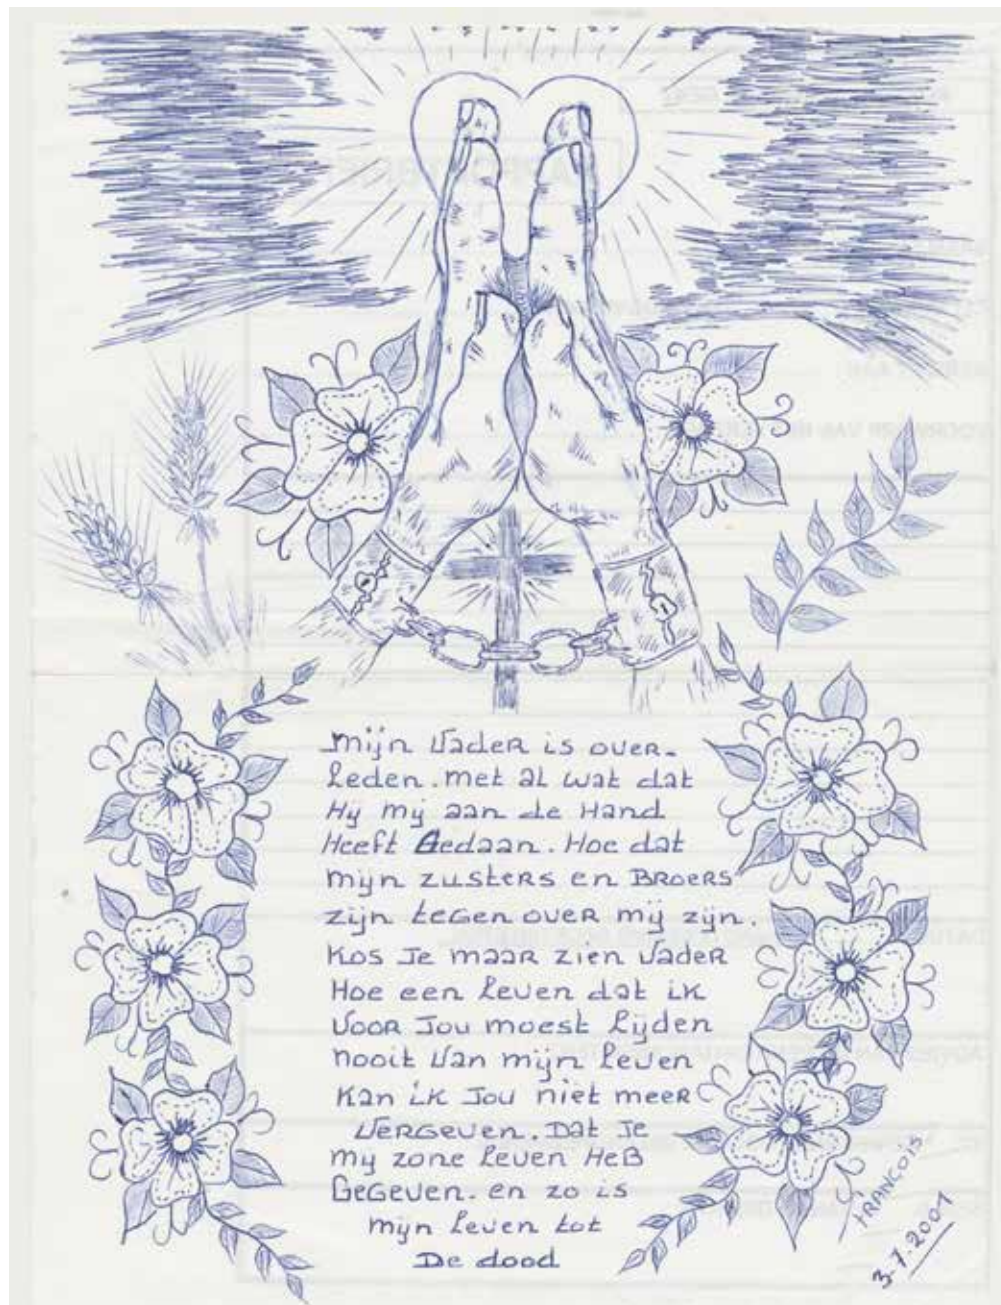 Mijn Vader is over-
leden. met al wat dat
Hy my aan de Hand
Heeft Gedaan. Hoe dat
mijn zusters en Broers
zijn tegen over mij zijn.
Kos Je maar zien Vader
Hoe een leven dat ik
Voor Jou moest lijden
nooit Van mijn leven
Kan ik Jou niet meer
Vergeven. Dat Je
my zone leven HeB
GeGeven. en zo is
mijn leven tot
De dood
FRANÇOIS
3.7.2001